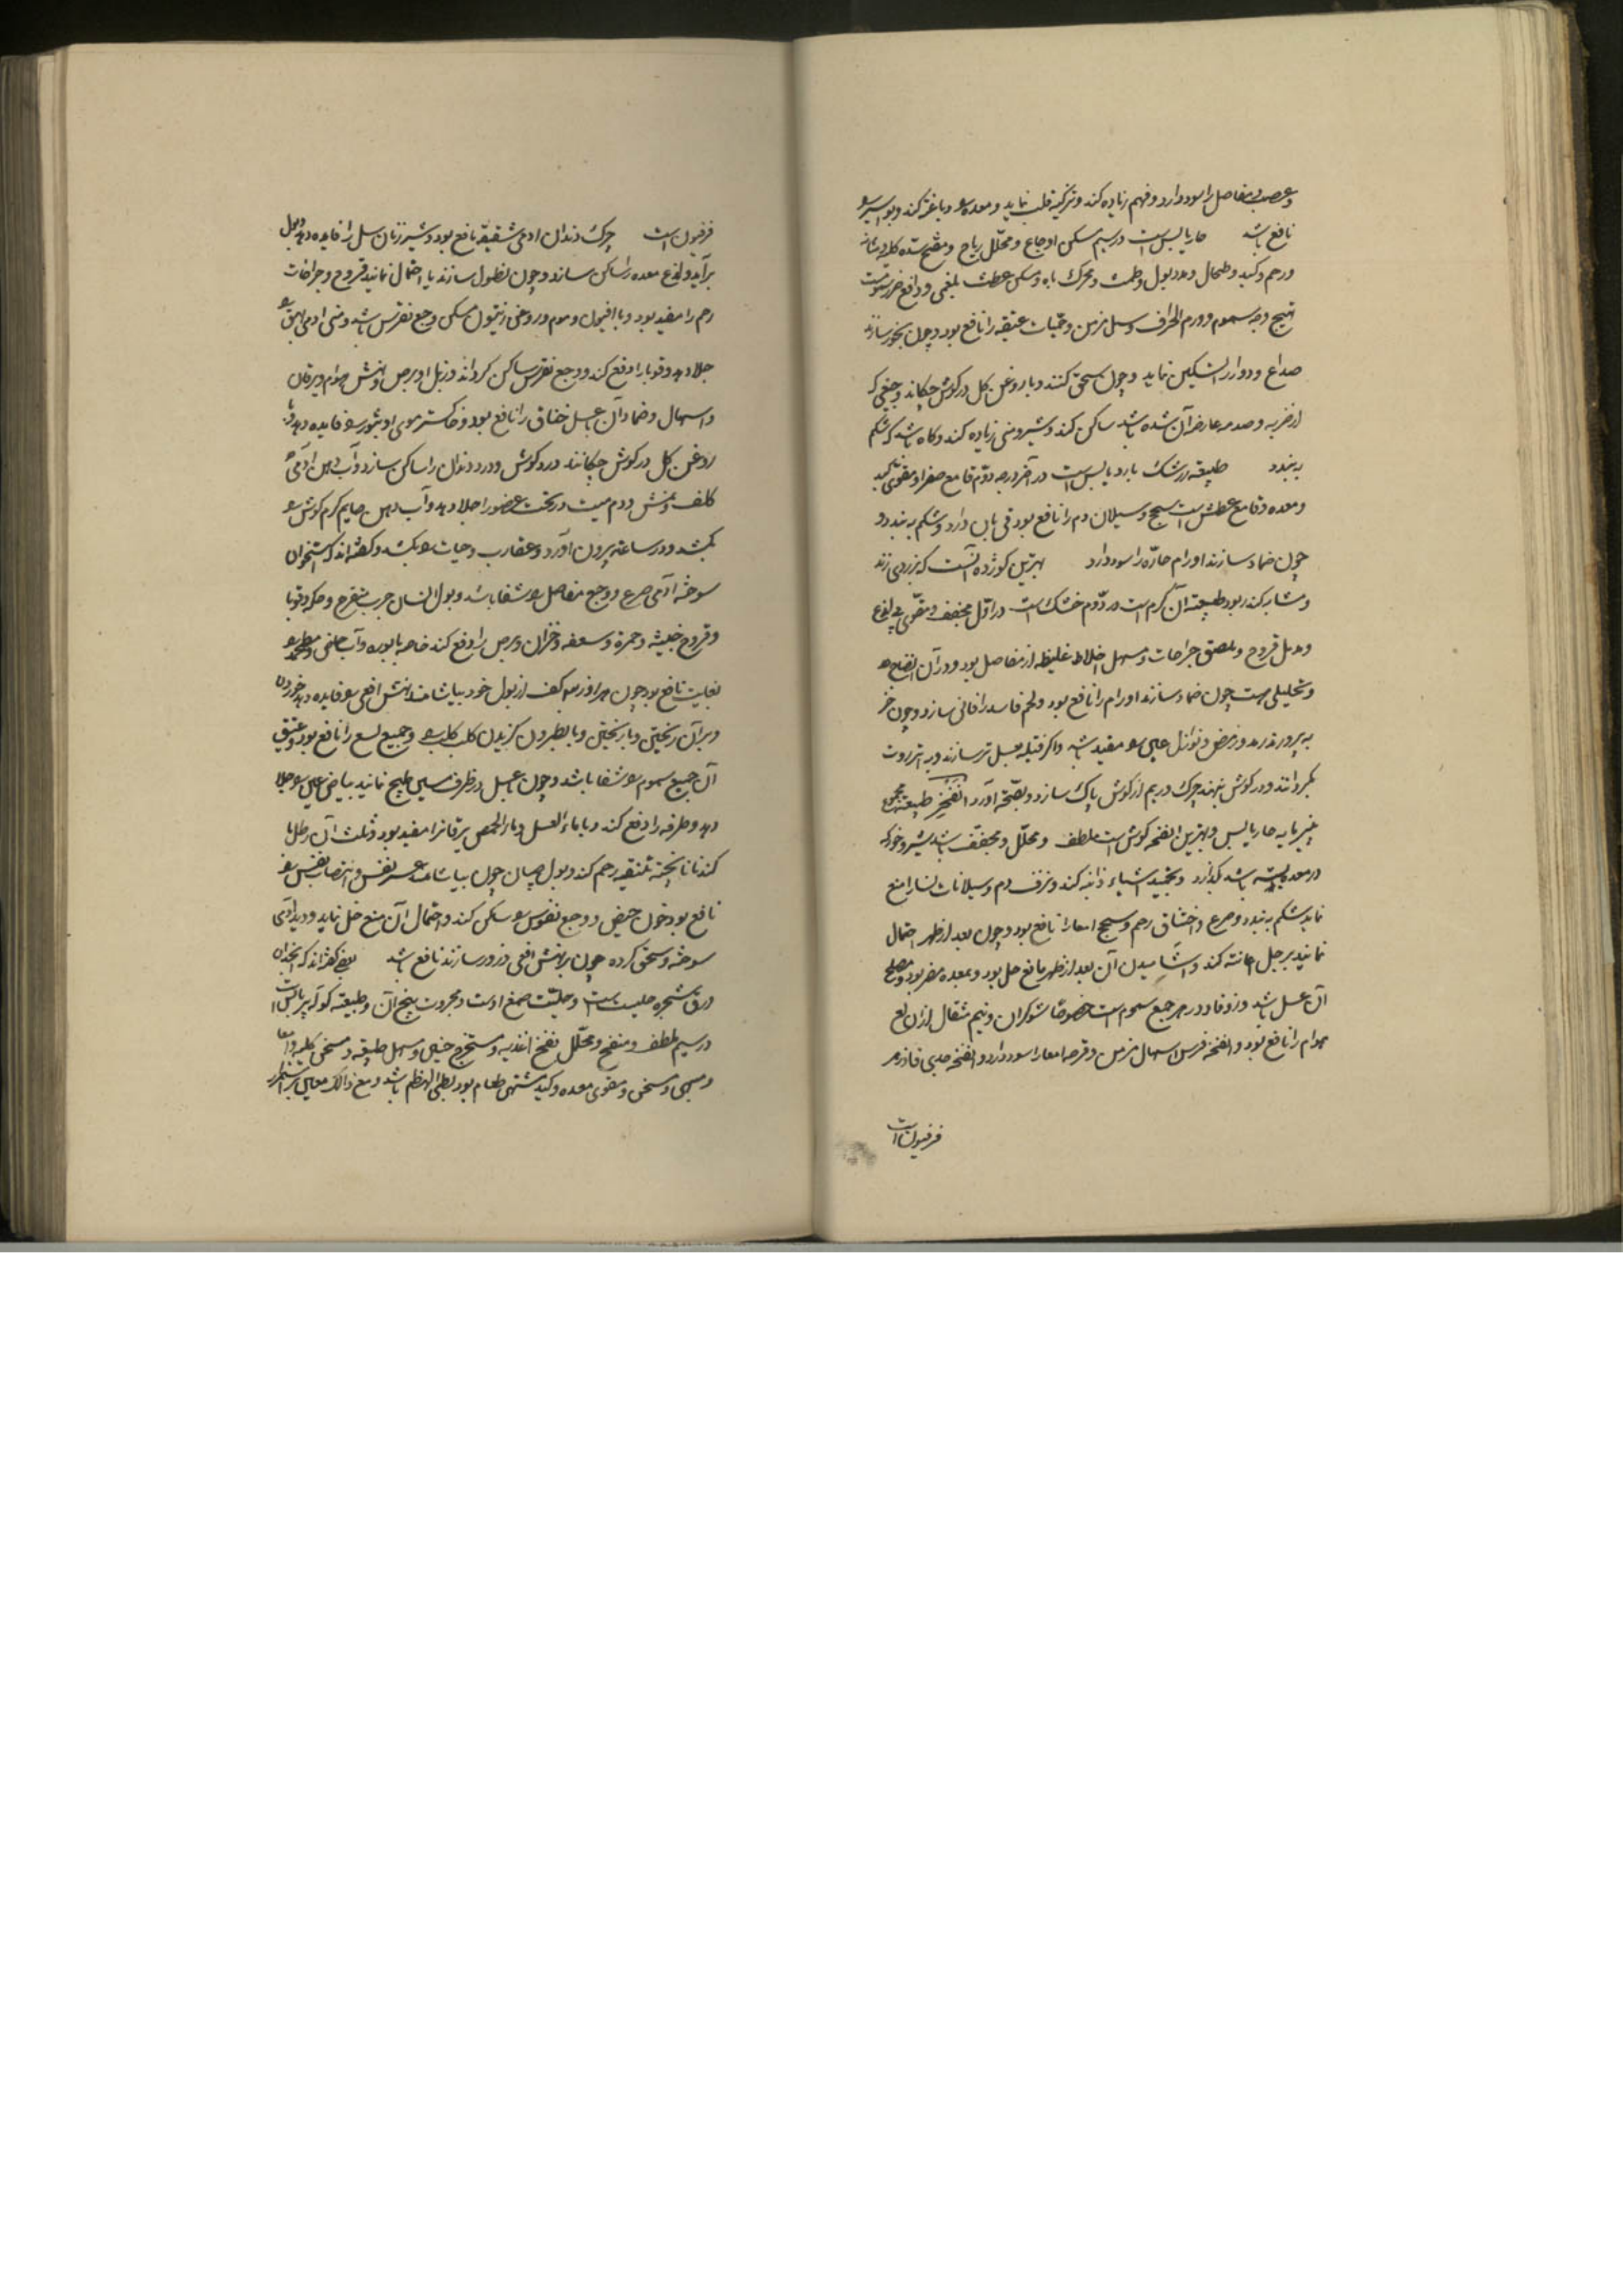 و عصب و مفاصل را سود دارد و فهم زیاده کند و تزکیه قلب نماید و معده را دباغة کند و بواسیر را
نافع باشد حار یابس است در سیم مسکن اوجاع و محلل ریاح و مفتح سده کلیه و مثانه
و رحم و کبد و طحال و مدر بول و طمث و محرک باه و مسکن عطش بلغمی و دافع ضرر
تهیج وجه سموم و ورم اطراف و سل مزمن و حمیات عتیقه را نافع بود و چون بخور سازند
صداع و دوار را تسکین نماید و چون سحق کنند و با روغن کل در کوش چکانند وجعی که
از ضربه و صدمه عارض آن شده باشد ساکن کند و شیر و منی زیاده کند و کاه باشد که شکم
به بندد طبیعة زرشک بارد یابس است در آخر درجه دوم قامع صفرا و مقوی کبد
و معده و قامع عطش است سحج و سیلان دم را نافع بود قی باز دارد و شکم به بندد و
چون ضماد سازند اورام حاره را سود دارد بهترین کوژده آنست که بزردی زند
و مشابه کندر بود طبیعة آن کرم است در دوم خشک است در اول مجفف و مقوی بی لذع
و مدمل قروح و ملصق جراحات و مسهل اخلاط غلیظه از مفاصل بود و در آن انضاج
و تحلیلی هست چون ضماد سازند اورام را نافع بود و لحم فاسد را فانی سازد و چون
به پرورند رمد و رمص و نوازل عین را مفید باشد و اکر فتیله بعسل تر سازند و به انزروت
بکردانند و در کوش نهند چرک و ریم از کوش پاک سازد و بصحة آورد انفخه طبیعة مجموع
پنیر مایه حار یابس و بهترین انفخه کوش است ملطف و محلل و مجفف باشد شیر و خونی که
در معده بسته باشد بکدازد و تجمید اشیاء ذائبه کند و نزف دم و سیلانات نسا را منع
نماید شکم به بندد و صرع و اختناق رحم و سحج امعا را نافع بود و چون بعد از طهر احتمال
نمایند بر حبل اعانة کند و آشامیدن آن بعد از طهر مانع حبل بود و بمعده مضر بود و مصلح
آن عسل باشد و زوفا و در جمیع سموم است خصوصا شوکران و نیم مثقال از آن لسع
هوام را نافع بود و انفخه فرس اسهال مزمن و قرحه امعا را سود دارد و انفخه جدی فادزهر
فرفیون است
فرفیون است چرک دندان آدمی شقیقه نافع بود و شیر زنان سل را فایده دهد و بول
برآید و لذع معده را ساکن سازد و چون نطول سازند یا احتمال نمایند قروح و جراحات
رحم را مفید بود و با افیون و موم و روغن زیتون مسکن وجع نقرس باشد و منی آدمی بهق را
جلا دهد و قوبا را دفع کند و وجع نقرس ساکن کرداند و زبل او برص و نهش هوام و یرقان
و اسهال و ضماد آن بعسل خناق را نافع بود و خاکستر موی او بثور را فایده دهد و با
روغن کل در کوش چکانند درد کوش و درد دندان را ساکن سازد و آب دهن آدمی
کلف و نمش و دم میت در تحت عضو را جلا دهد و آب دهن صایم کرم کوش را
بکشد و در ساعة بیرون آورد و عقارب و حیات را بکشد و کفته اند که استخوان
سوخته آدمی صرع و وجع مفاصل را شفا باشد و بول انسان جرب متقرح و حکه و قوبا
و قروح خبیثه و حمره و سعفه و حزاز و برص را دفع کند خاصه با بوره و آب
بغایت نافع بود چون هر روز سه کف از بول خود بیاشامند نهش افعی را فایده دهد خوردن
و بر آن ریختن و با نطرون کزیدن کلب کلب را و جمیع لسع را نافع بود و عتیق
آن جمیع سموم را شفا باشد و چون بعسل در ظرف مسین طبخ نمایند بیاض عین را جلا
دهد و طرفه را دفع کند و با ماء العسل و ماء الحمص یرقان را مفید بود و ثلث آن رطل با
کندنا پخته تنقیه رحم کند و بول صبیان چون بیاشامند عسر نفس و انتصاب نفس را
نافع بود و خون حیض وجع نقرس را ساکن کند و احتمال آن منع حبل نماید
سوخته و سحق کرده چون بر نهش افعی ذرور سازند نافع باشد بعضی کفته اند که انجدان
ورق شجره حلتیت است و حلتیت صمغ اوست و محروت بیخ آن و طبیعة کوله پر یابس است
در سیم ملطف و منضج و محلل نفخ اغذیه و مستخرج جنین و مسهل طبیعة و مسخن کلیه و امعا
و مسخن و مقوی معده و کبد مشتهی طعام بود بطئ الهضم باشد و مع ذالک معین بر استمرا